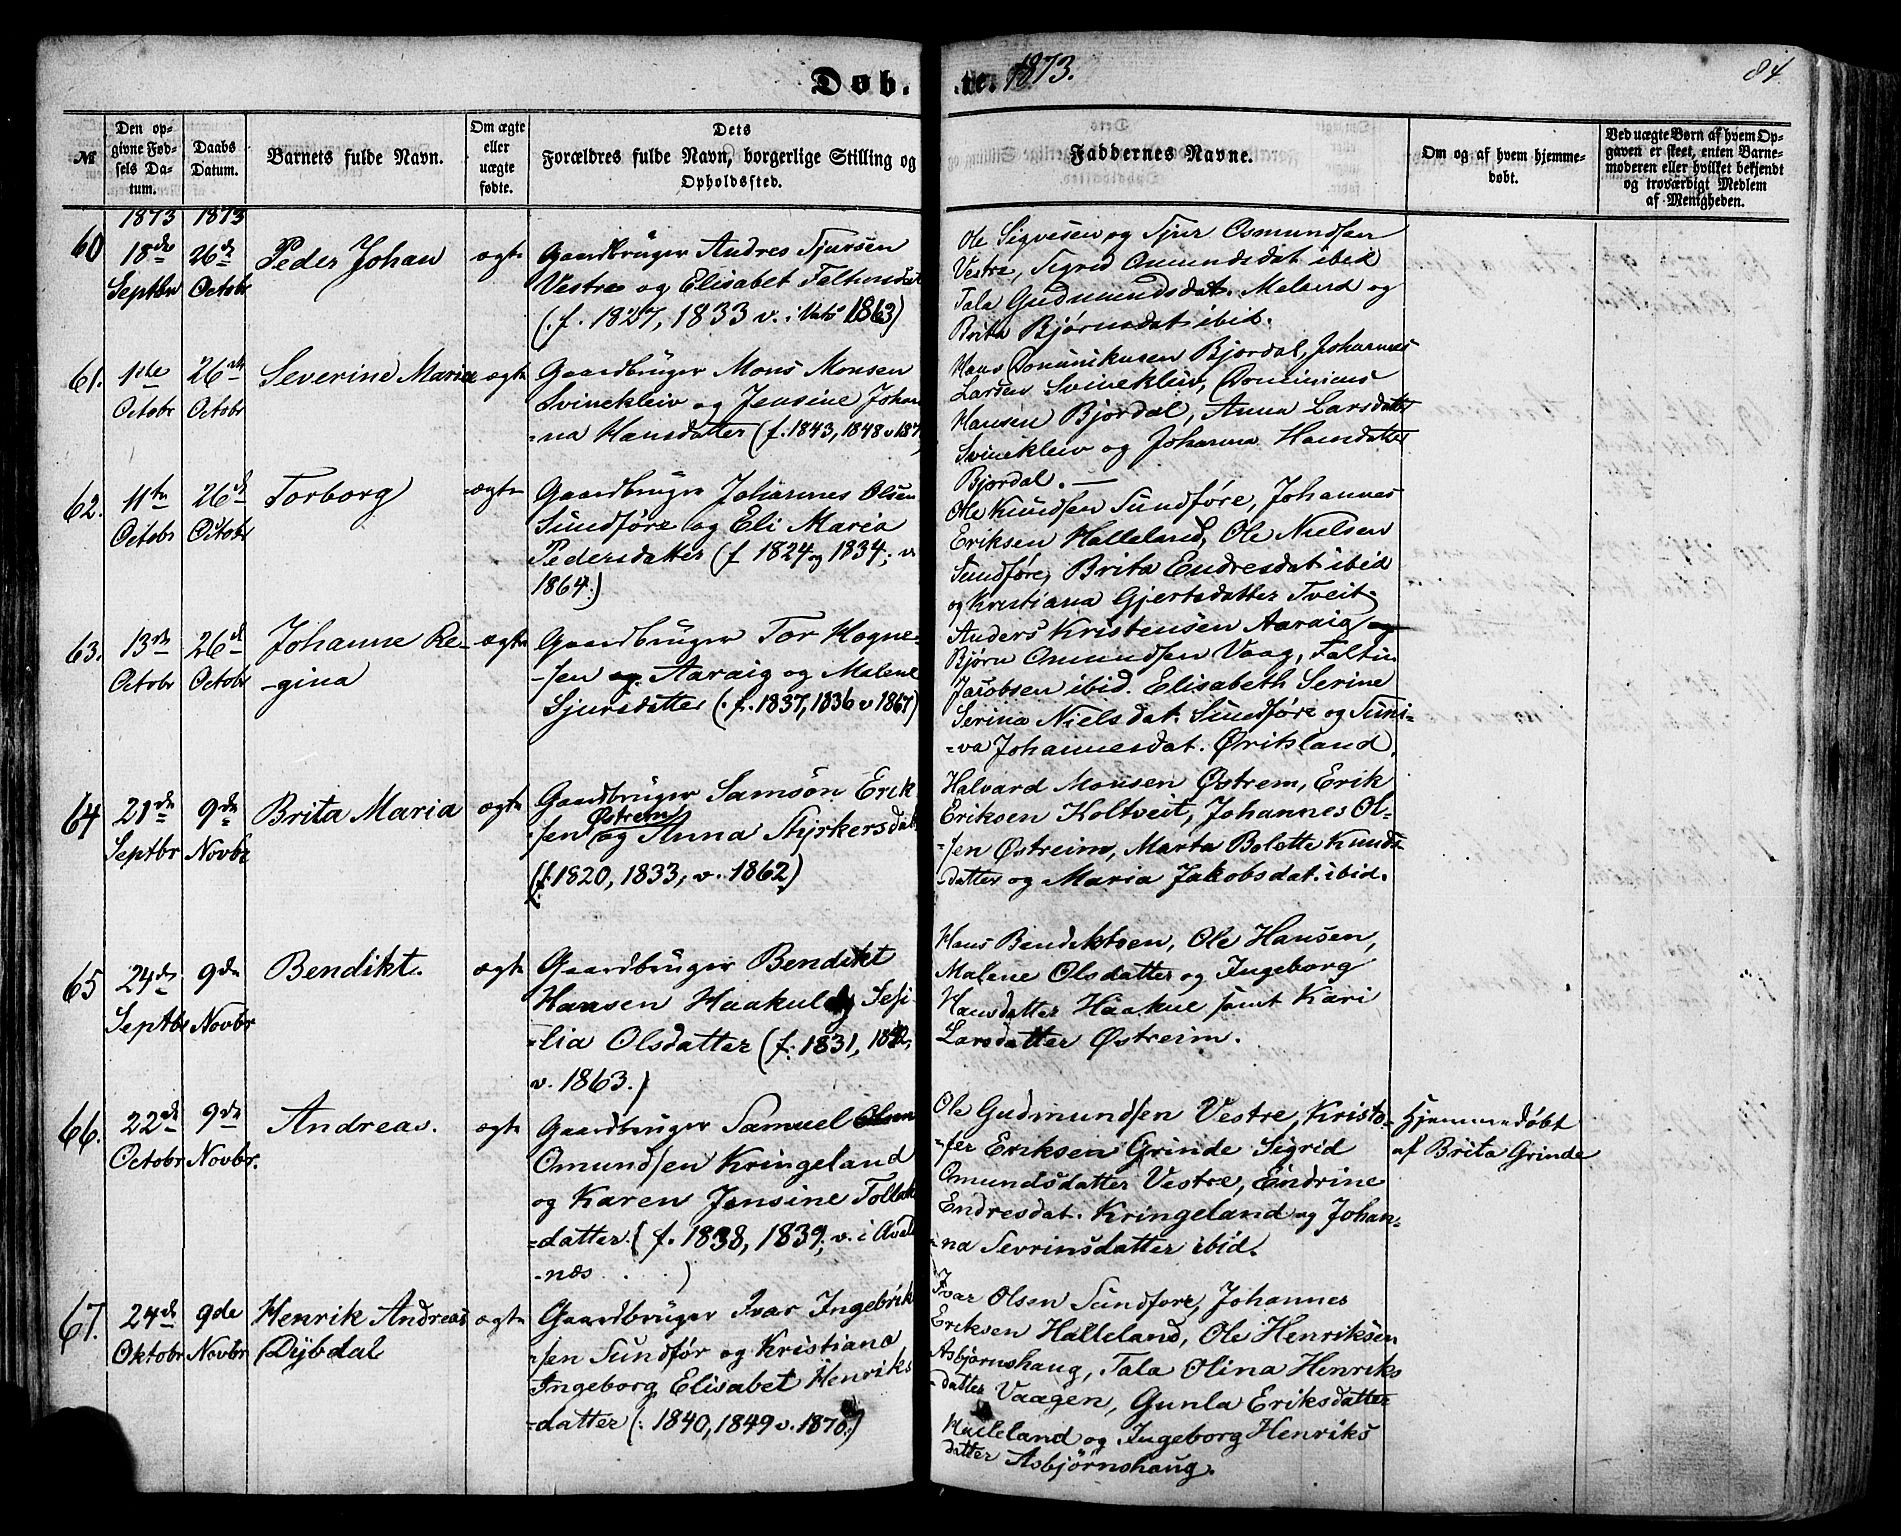 Døb.
te. 1873.
84
№
Den op-
givne Fød-
sels Da-
tum.
Daabs
Datum.
Barnets fulde Navn.
Om ægte
eller
uægte
fødte.
Dets
Forældres fulde Navn, borgerlige Stilling og
Opholdssted.
Faddernes Navne.
Om og af hvem hjemme-
døbt.
Ved uægte Børn af hvem Op-
gaven er skeet, enten Barne-
moderen eller hvilket bekjendt
og troværdigt Medlem
af Menigheden.
1873
1873
60
18de
Septbr
26de
Octobr
Peder Johan
ægte
Gaardbruger Andres Sjursen
Vestre og Elisabet
(. f. 1827, 1833 v. i Vats 1863)
Ole Sigvesen og Sjur Osmundsen
Vestre, Sigrid Omundsdat ibid
Tala Gudmundsdat. Meland og
Brita Bjørnsdat ibid.
61.
1ste
Octobr
26de
Octobr
Severine Maria
ægte
Gaardbruger Mons Monsen
Svinekleiv og Jensine Johan
-na Hansdatter (f. 1843, 1848 v 187
Hans Dominikusen Bjordal, Johannes
Larsen Svinekleiv, Dominicus
Hansen Bjordal, Anna Larsdatter
Svinekleiv og Johanna Hansdatter
Bjordal. —
62.
11te
Octobr
26de
Octobr
Torborg
ægte
Gaardbruger Johannes Olsen
Sundføre og Eli Maria
Pedersdatter (f 1824 og 1834; v
1864.)
Ole Knudsen Sundføre, Johannes
Eriksen Halleland, Ole Nielsen
Sundføre, Brita Endresdat ibid
og Kristiana Gjertsdatter Tveit
63.
13de
Octobr
26de
Octobr
Johanne Re-
-gina
ægte
Gaardbruger Tor Hogne-
-sen og Aaraig og Malene
Sjursdatter (. f. 1837, 1836 v 1867)
Anders Kristensen Aaraig og
Bjørn Omundsen Vaag, Faltin
Jacobsen ibid. Elisabeth Serine
Serina Nielsdat. Sundføre og Suni-
-va Johannesdat. Øritsland.
64
21de
Septbr
9de
Novbr
Brita Maria
ægte
Gaardbruger Samson Erik
-sen Østrem og Anna Styrkersdat
(f. 1820, 1833, v. 1862)
Halvard Monsen Østrem, Erik
Eriksen Koltveit, Johannes Ol-
-sen Østreim, Marta Bolette Knuds
-datter og Maria Jakobsdat. ibid.
65
24de
Septbr
9de
Novbr
Bendikt.
ægte
Gaardbruger Bendikt
Hansen Haakul og Sesi-
-lia Olsdatter (f. 1831, 1842,
v. 1863.)
Hans Bendiktsen, Ole Hansen,
Malene Olsdatter og Ingeborg
Hansdatter Haakul samt Kari
Larsdatter Østreim.
66.
22de
Octobr
9de
Novbr.
Andreas.
ægte
Gaardbruger Samuel Olsen
Omundsen Kringeland
og Karen Jensine Tollak
-datter. (f. 1838, 1839, v. i Avald
-næs . . .)
Ole Gudmundsen Vestre, Kristo-
-fer Eriksen Grinde Sigrid
Omundsdatter Vestre, Endrine
Endresdat. Kringeland og Johan-
-na Sevrinsdatter ibid.
Hjemmedøbt
af Brita Grinde
67.
24de
Oktobr
9de
Novbr
Henrik Andreas
Dybdal
ægte
Gaardbruger Ivar Ingebrik
-sen Sundfør og Kristiana
Ingeborg Elisabet Henriks
-datter (. 1840, 1849 v. 1870.)
Ivar Olsen Sundføre, Johannes
Eriksen Halleland, Ole Henriksen
Asbjørnshaug, Tala Olina Henriks
-datter Vaagen, Gunla Eriksdatter
Halleland og Ingeborg Henriks
datter Asbjørnshaug.